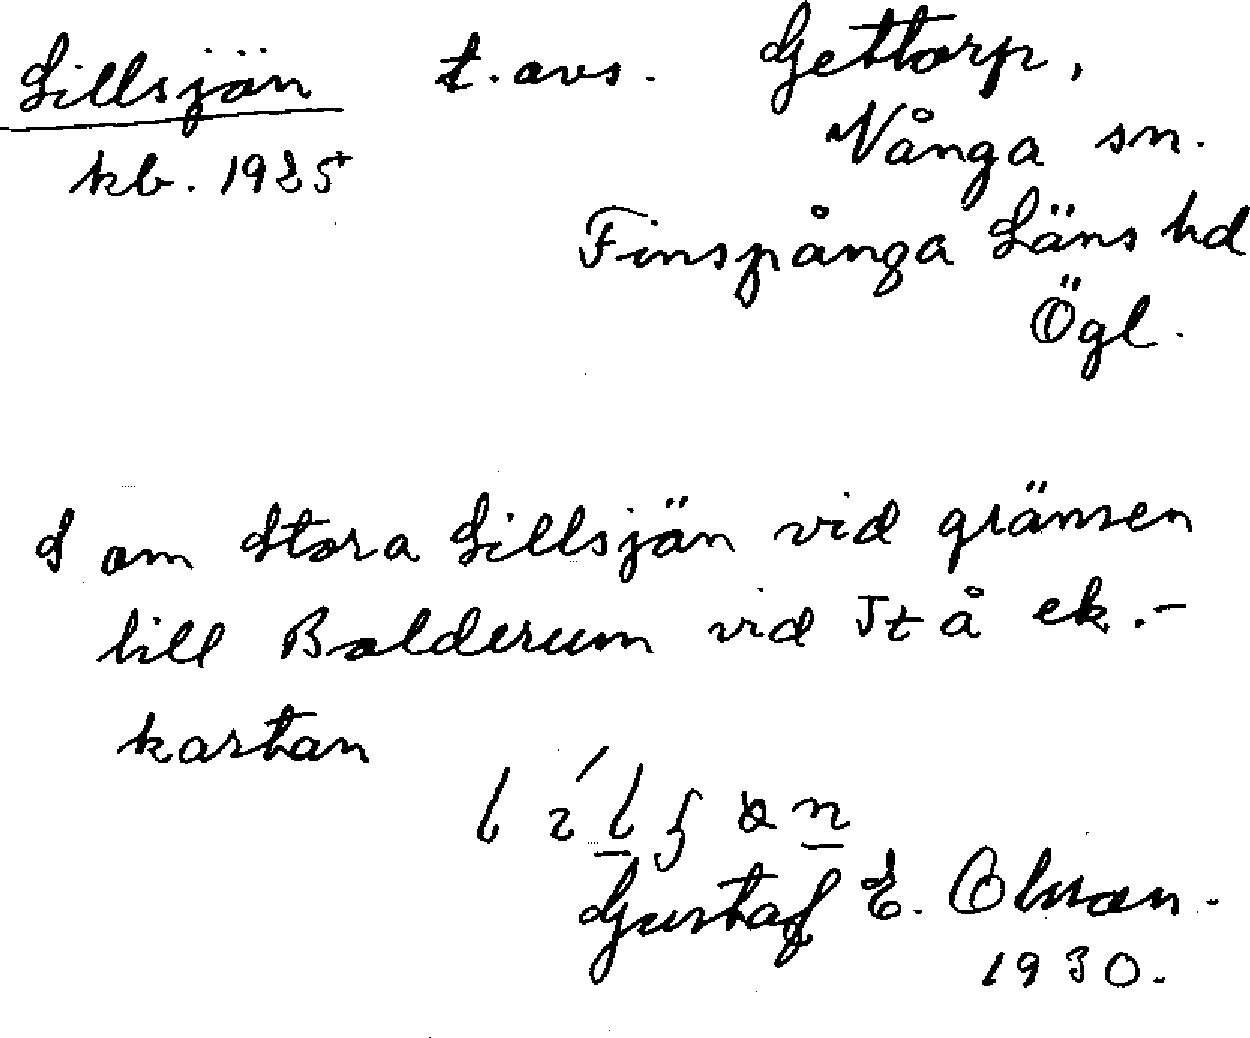 Lillsjön t. avs. Gettorp,
kb. 1925 Vånga sn.
Finspånga Läns hd
Ögl.
S om Stora Lillsjön vid gränsen
till Bolderum vid St å ek.-
kartan
Gustaf E. Olsson.
1930.